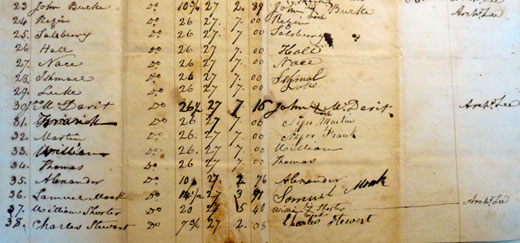 23. John Burke Do 10½ 27 2. 39 John Burke Archd Lee
24. Regin Do 26 27 7. 00 Regin
25. Salsbury Do 26 27 7. 00 Salsbury
26. Hall Do 26 27 7. 00 Hall
27. Nace Do 26 27 7. 00 Nace
28. Ishmael Do 26 27 7. 00 Ishmal
29. Luke Do 26 27 7. 00 Luke
30. McDerit Do 26½ 27 7. 15 John McDerit Archd Lee
31. Do 26 27 7. 00 Nijor Martin
32. Martin Do 26 27 7. 00 Nijor Frank
33. William Do 26 27 7. 00 William
34. Thomas Do 26 27 7. 00 Thomas
35. Alexander Do 10 27 2. 76 Alexander
36. Samuel Monk Do 14½ 27 3. 91 Samuel Monk
37. William Shorter Do 20 27 5 40 William Shorter Archd Lee
38. Charles Stewert Do 7¾ 27 2. 08 Charles Stewert